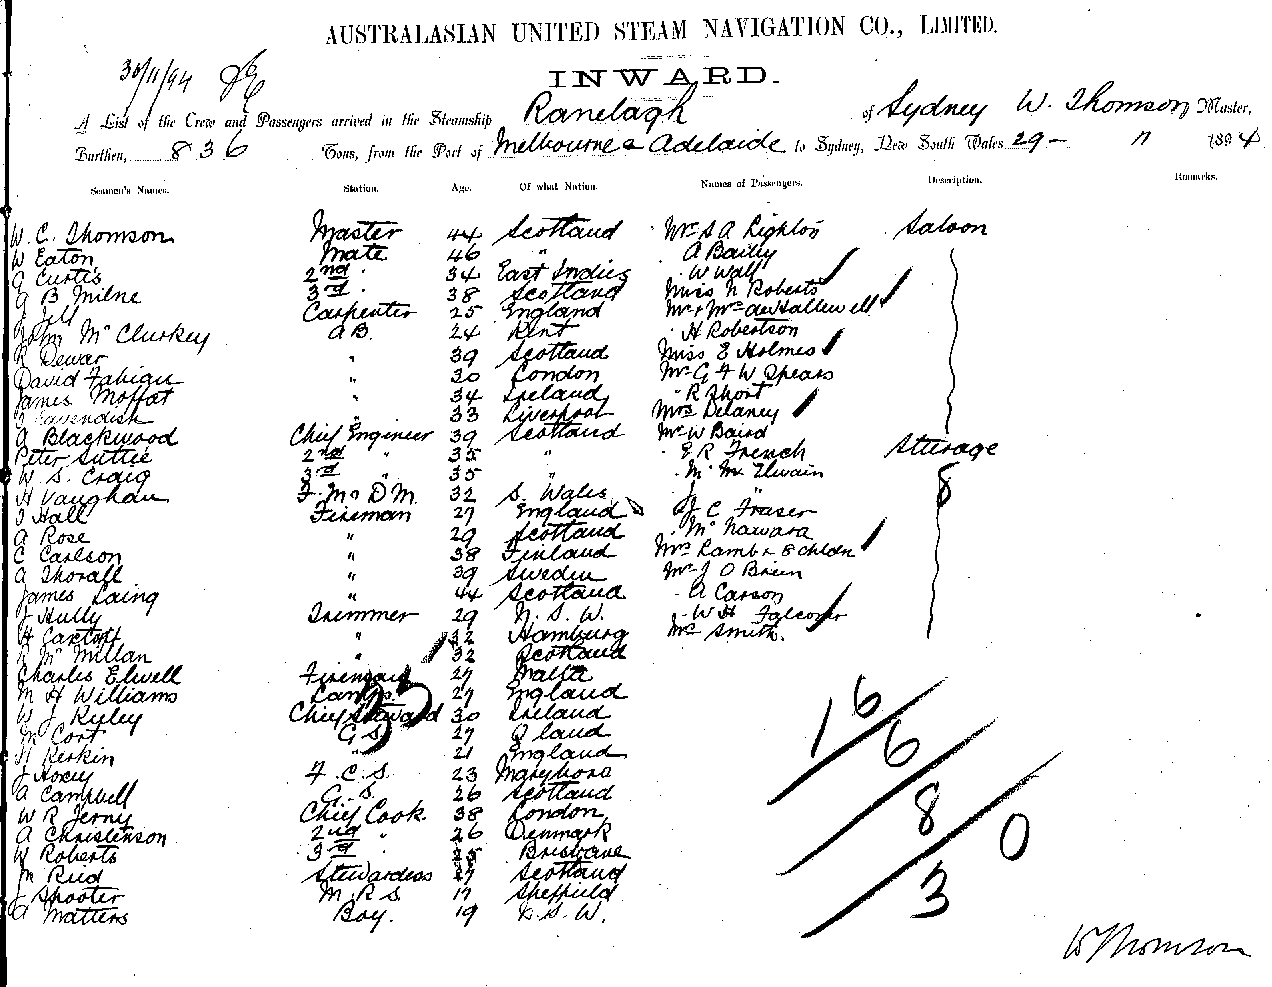 AUSTRALASIAN UNITED STEAM NAVIGATION CO., LIMITED.
30/11/94
INWARD.
A List of the Crew and Passengers arrived in the Steamship Ranelagh of Sydney W. Thomson Master,
Burthen, 836 Tons, from the Port of Melbourne & Adelaide to Sydney, New South Wales 29 - 11 1894
Seamen's Names. Station. Age. Of what Nation. Names of Passengers. Description. Remarks.
W. C. Thomson Master 44 Scotland Mr S A Saloon
W Eaton Mate 46 " A Bailey
G Curtis 2nd " 34 East Indies " W Wall
G B Milne 3rd " 38 Scotland Miss N Roberts
Carpenter 25 England Mr & Mrs
John McCluskey A B. 24 Kent " H Robertson
R Dewar " 39 Scotland Miss E Holmes
David Fabian " 30 London Mr G F W Spears
James Moffat " 34 Ireland " R Short
Cavendish " 33 Liverpool Mrs Delaney
A Blackwood Chief Engineer 39 Scotland Mr W Baird
Peter Suttie 2nd " 35 " " E R French Steerage
W. S. Craig 3rd " 35 " " Mc Ilwain 8
H Vaughan 32 S. Wales " J "
Hall Fireman 27 England " J C Fraser
A Rose " 29 Scotland " McNamara
C Carlson " 38 Finland Mrs Lamb & 8 chldn
A Thorall " 39 Sweden Mr J O Brien
James Laing " 44 Scotland " A Carson
J Hully Trimmer 29 N. S. W. " W H Falconer
H " 32 Hamburg Mr Smith.
McMillan " 32 Scotland
Charles Elwell Fireman 27 Malta
M H Williams Lamps. 27 England
W J Ryley Chief Steward 30 Ireland
M Cort G S. 27 Q land
H Perkin " 21 England
J Hoey F. C. S. 23 Maryboro
A Campbell G. S. 26 Scotland
W R Jerny Chief Cook. 38 London
A Christenson 2nd " 26 Denmark
W Roberts 3rd " 25 Brisbane
M Reid Stewardess 27 Scotland
J Shooter M. R S. 17 Sheffield
A Matters Boy. 19 N. S. W.
35
16
6
8
3
0
W Thomson